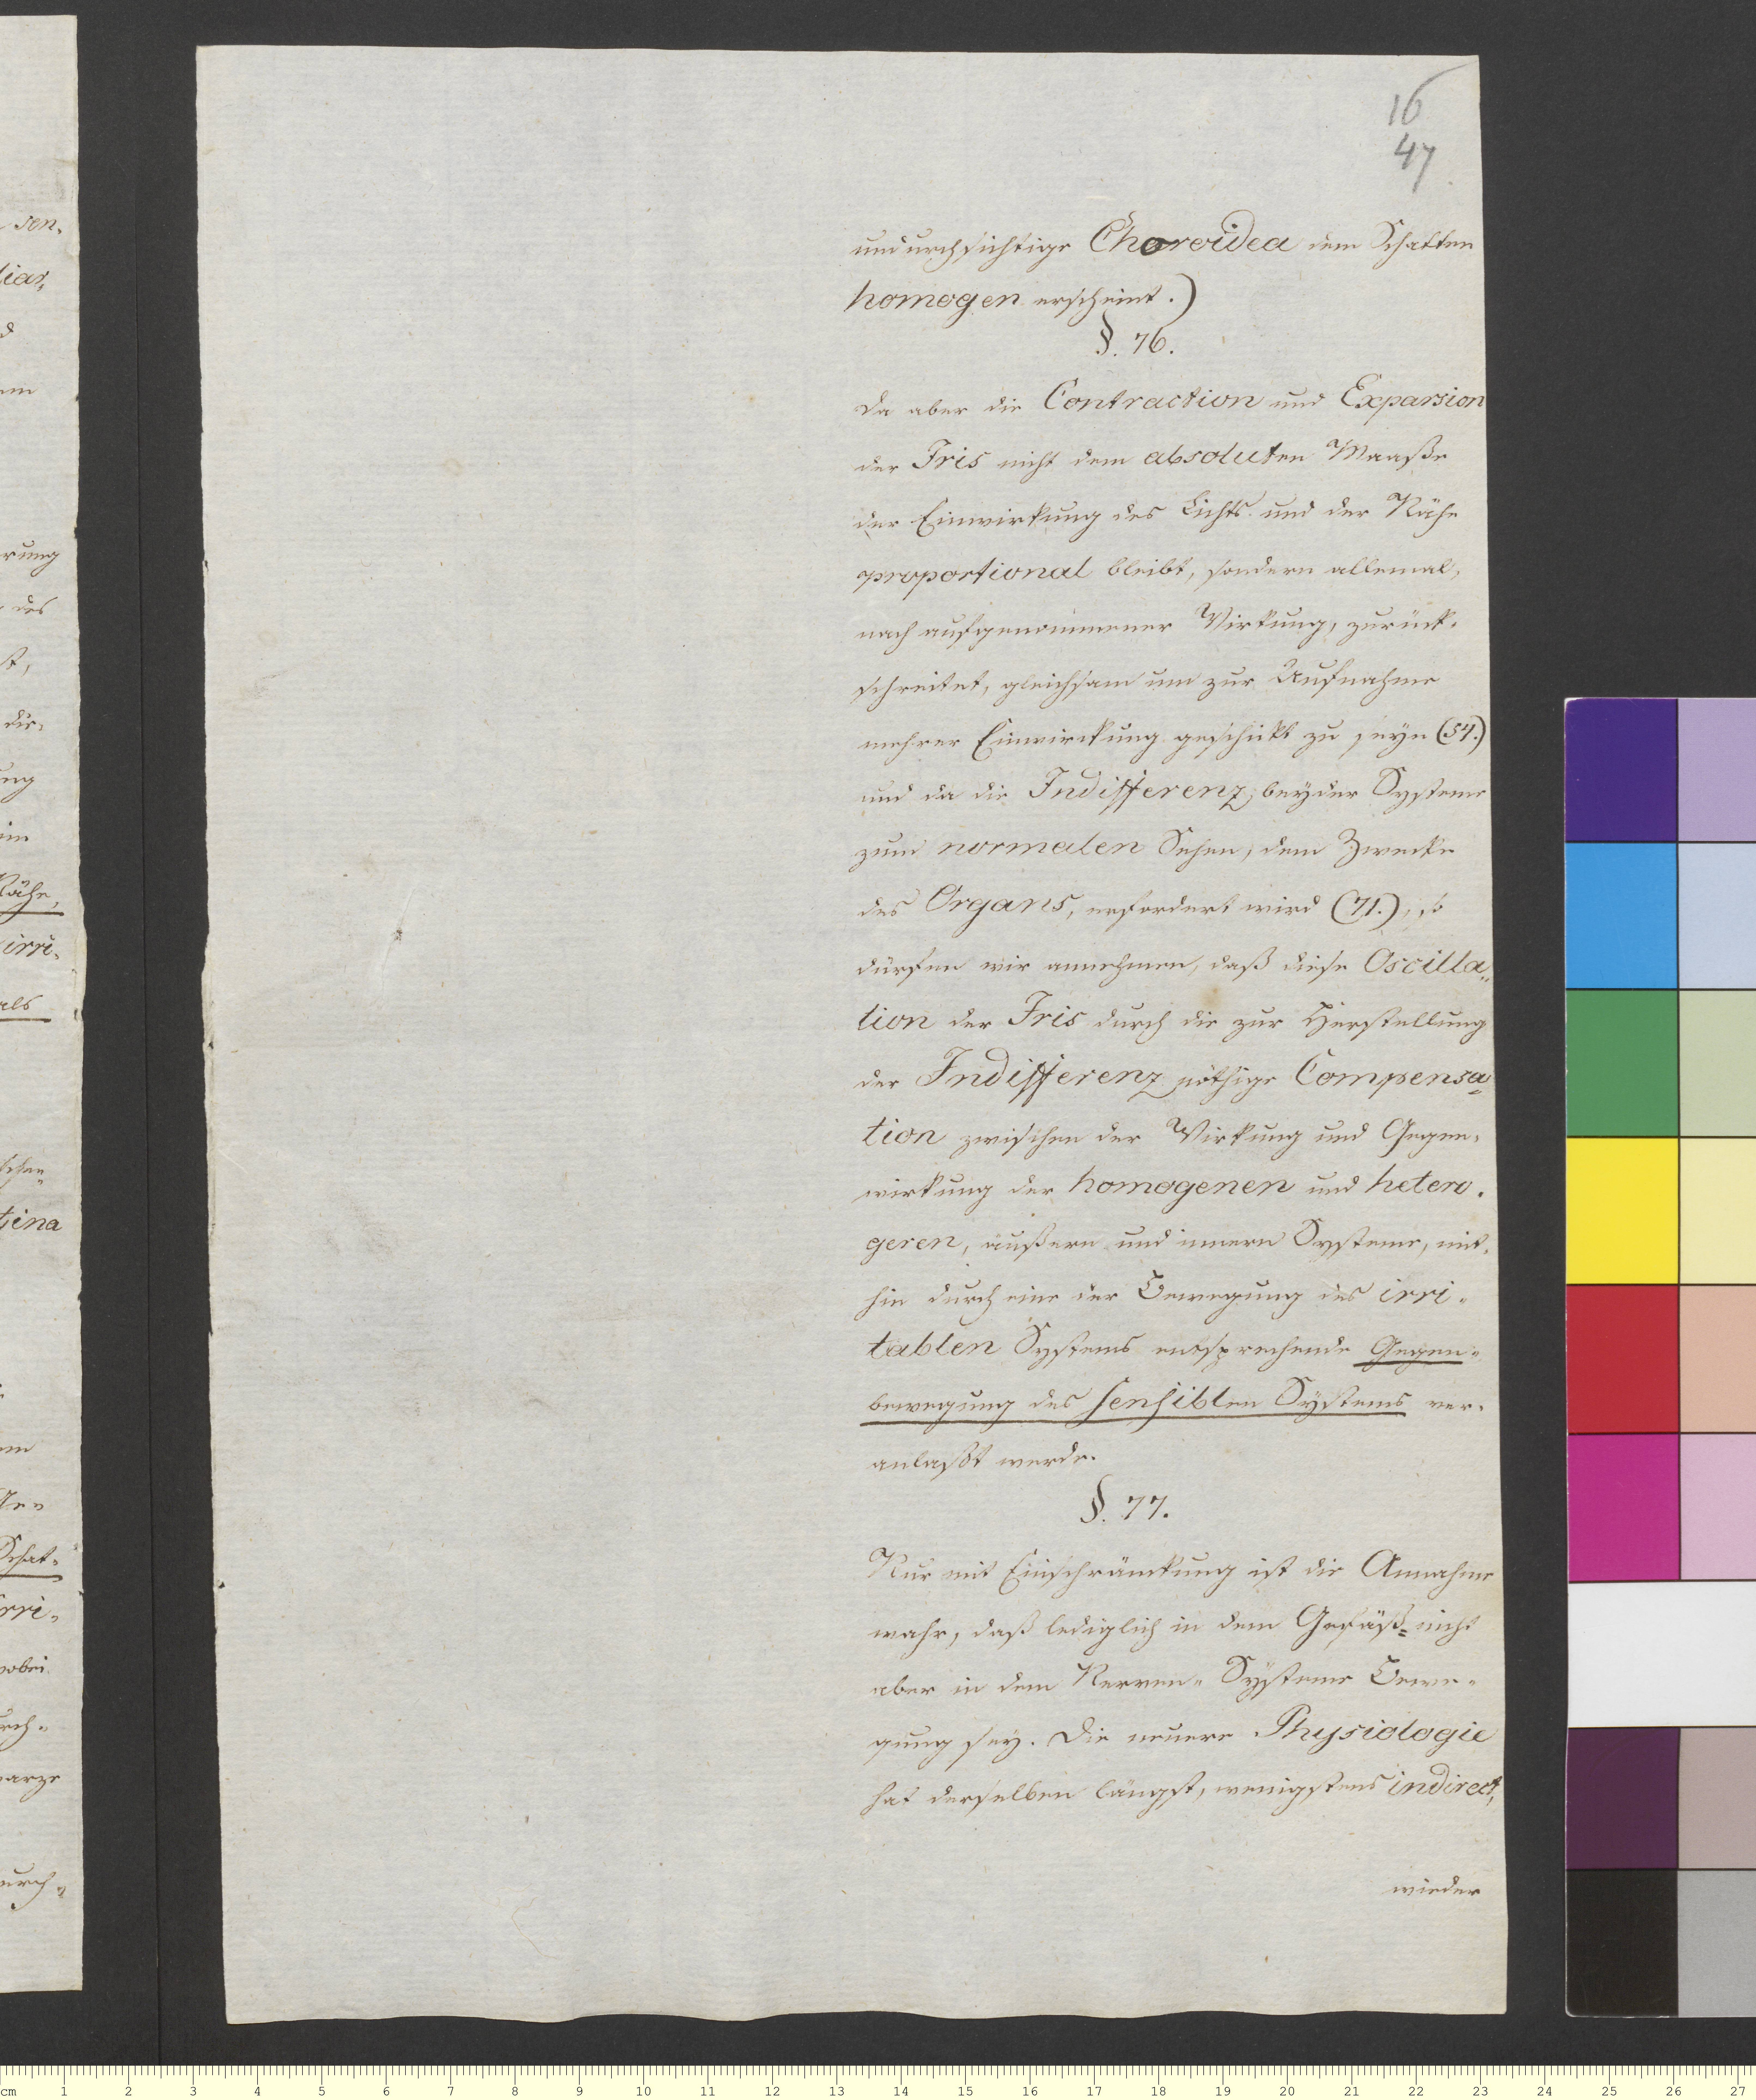 16
47
undurchsichtige Choroidea dem Schatten
homogen erscheint.)
§. 76.
Da aber die Contraction und Expansion
der Iris nicht dem absoluten Maaße
der Einwirkung des Lichts und der Nähe
proportional bleibt, sondern allemal,
nach aufgenommener Wirkung, zurück-
schreitet, gleichsam um zur Aufnahme
mehrer Einwirckung geschickt zu seyn (54.)
und da die Indifferenz beyder Systeme
zum normalen Sehen, dem Zwecke
des Organs, erfordert wird (71.), so
dürfen wir annehmen, daß diese Oscilla-
tion der Iris durch die zur Herstellung
der Indifferenz nöthige Compensa-
tion zwischen der Wirkung und Gegen-
wirkung der homogenen und hetero-
genen, äußern und innern Systeme, mit-
hin durch eine der Bewegung des irri-
tablen Systems entsprechende Gegen-
bewegung des sensiblen Systems ver-
anlaßt werde.
§. 77.
Nur mit Einschränkung ist die Annahme
wahr, daß lediglich in dem Gefäß- nicht
aber in dem Nerven- Systeme Bewe-
gung sey. Die neuere Physiologie
hat derselben längst, wenigstens indirect,
wieder
sen-
rung
des
st,
Nähe,
irri-
als
Schat-
irri-
wobei